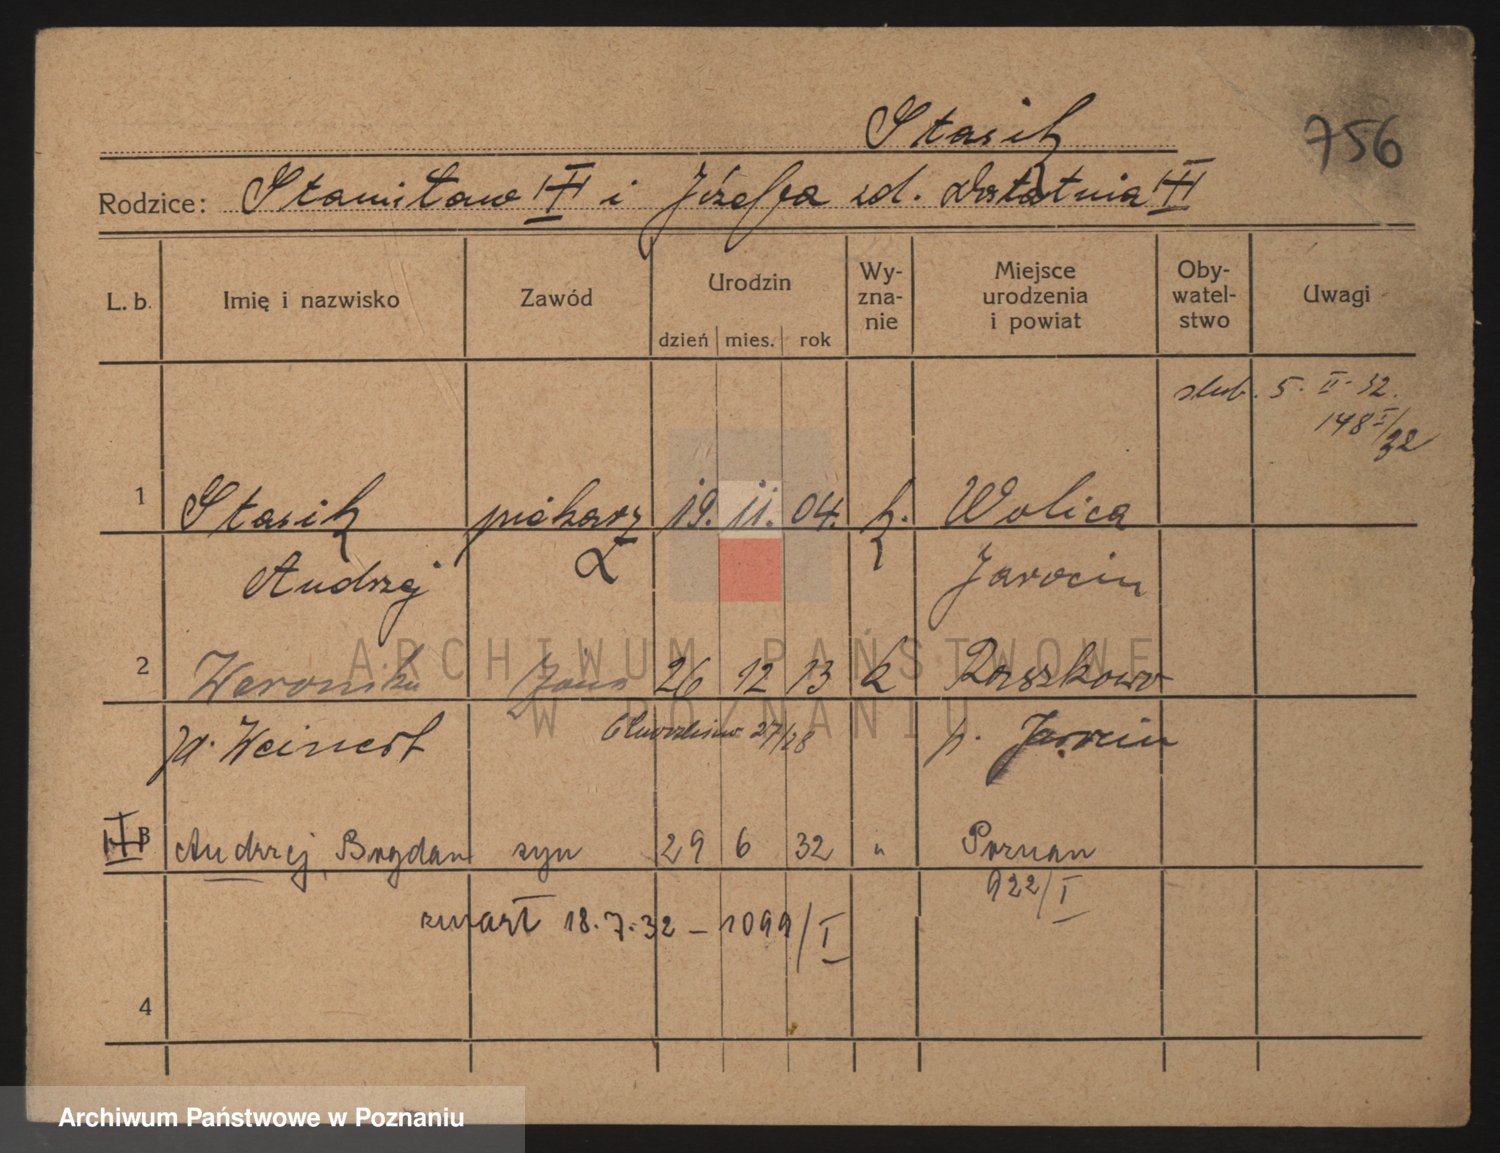 Stasik
756
Rodzice: Stanisław i Józefa zd.
L. b. Imię i nazwisko Zawód Urodzin dzień mies. rok Wy-zna-nie Miejsce urodzenia i powiat Oby-watel-stwo Uwagi
ślub. 5. II. 32.
148 I/32
1 Stasik piekarz 19. 11. 04. k. Wolica
Andrzej Jarocin
2 Weronika żona 26 12 13 k Raszkowo
zd. Weinert 27/28 p. Jarocin
3 Andrzej, Bogdan syn 29 6 32 " Poznań
922/I
zmarł 18.7.32 – 1099/I
4
ARCHIWUM PAŃSTWOWE
W POZNANIU
Archiwum Państwowe w Poznaniu